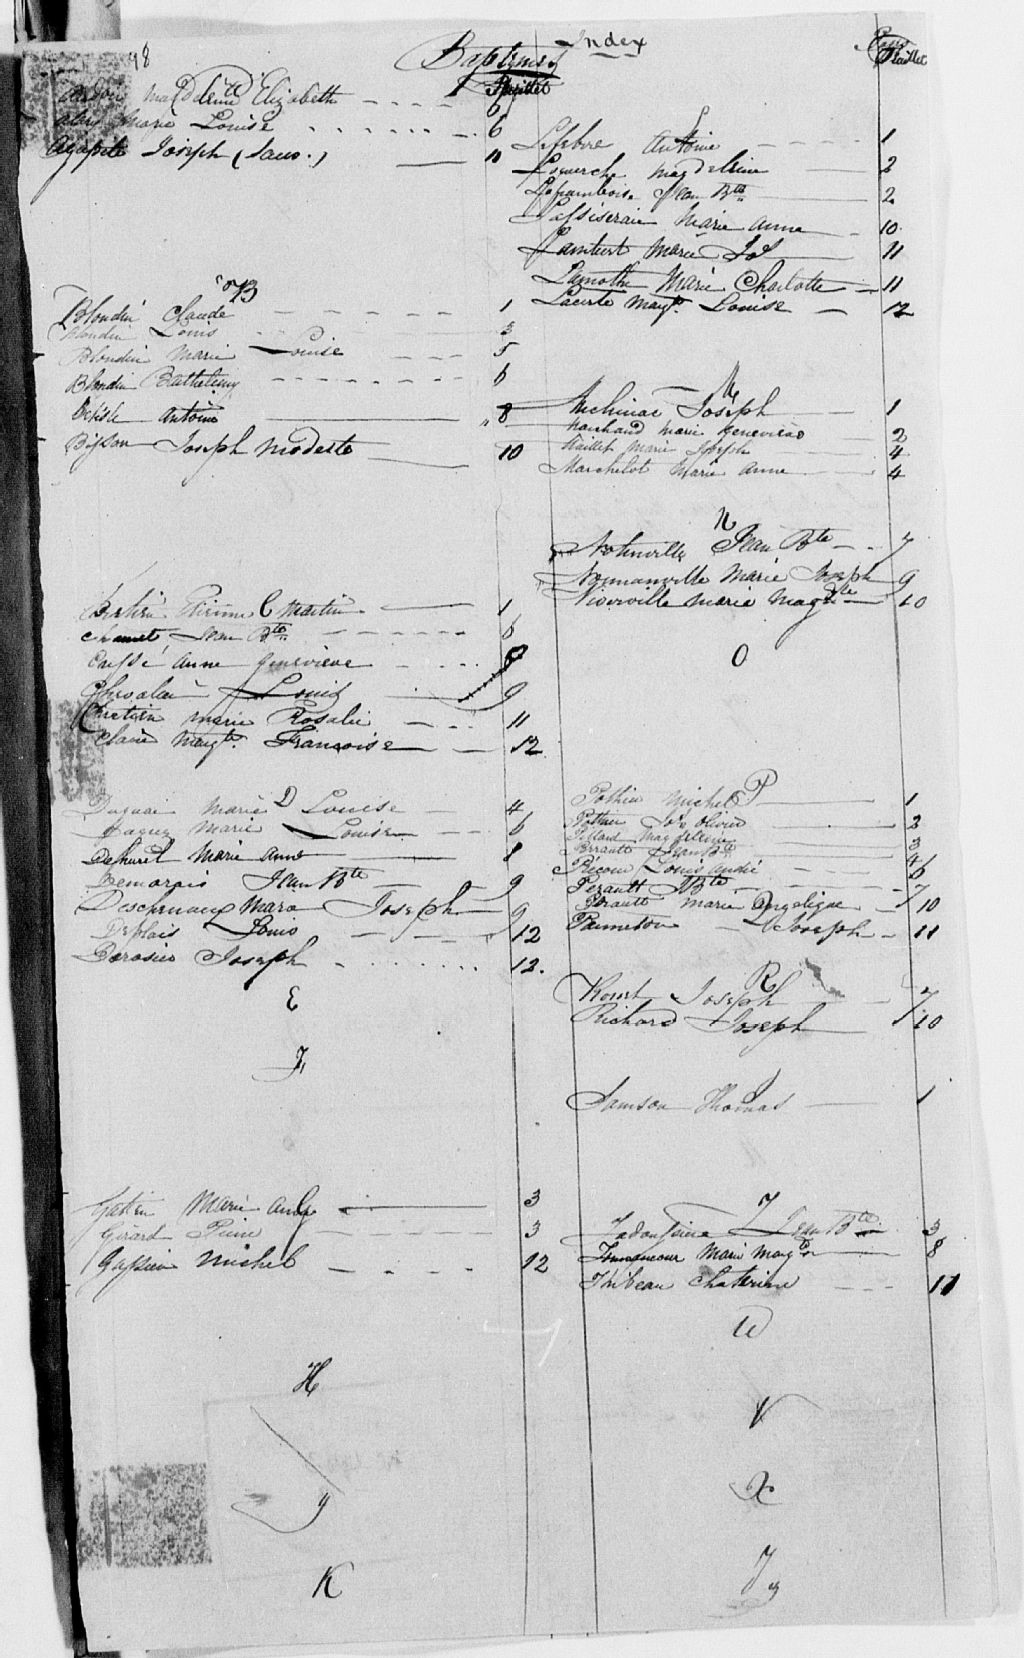 98
Index
Baptemes
Feuillet
Magdeleine Elizabeth 6
Marie Louise 6
Agapite Joseph (Sauv.) 10
B
Blondin Claude 1
Blondin Louis 3
Blondin Marie Louise 5
Blondin Bathelemy 6
Antoine 8
Bisson Joseph Modeste 10
C
Etienne Martin 1
Jean Bte 6
Caissé Anne Genevieve 8
Chevalier Louis 9
Chretien Marie Rosalie 11
Claire Magte. Francoise 12
D
Duguai Marie Louise 4
Marie Louise 6
Dehurel Marie Anne 8
Demarais Jean Bte 9
Marie Joseph 9
Louis 12
Joseph 12.
E
F
G
Gatien Marie Ang 3
Girard Pierre 3
Gassien Michel 12
H
J
K
Feuillet
L
Lefebvre Antoine 1
Magdeleine 2
Laframboise Jean Bte 2
Marie Anne 10
Lambert Marie Jos 11
Lamothe Marie Charlotte 11
Lacerte Magte. Louise 12
M
Joseph 1
Marchand Marie Genevieve 2
Maillet Marie Joseph 4
Marchelot Marie Anne 4
N
Jean Bte 7
Normanville Marie Joseph 9
Niverville Marie Magdte 10
O
P
Pothier Michel 1
Pothier Jos. Olivier 2
Magdeleine 3
Perrault Jean Bte 4
Louis André 6
Perault Bte 7
Perault Marie Angelique 10
Panneton Joseph 11
R
Joseph 7
Richard Joseph 10
S
Samson Thomas 1
T
Jean Bte 3
Marie Magdne 8
Thibeau Chaterine 11
U
V
X
Y